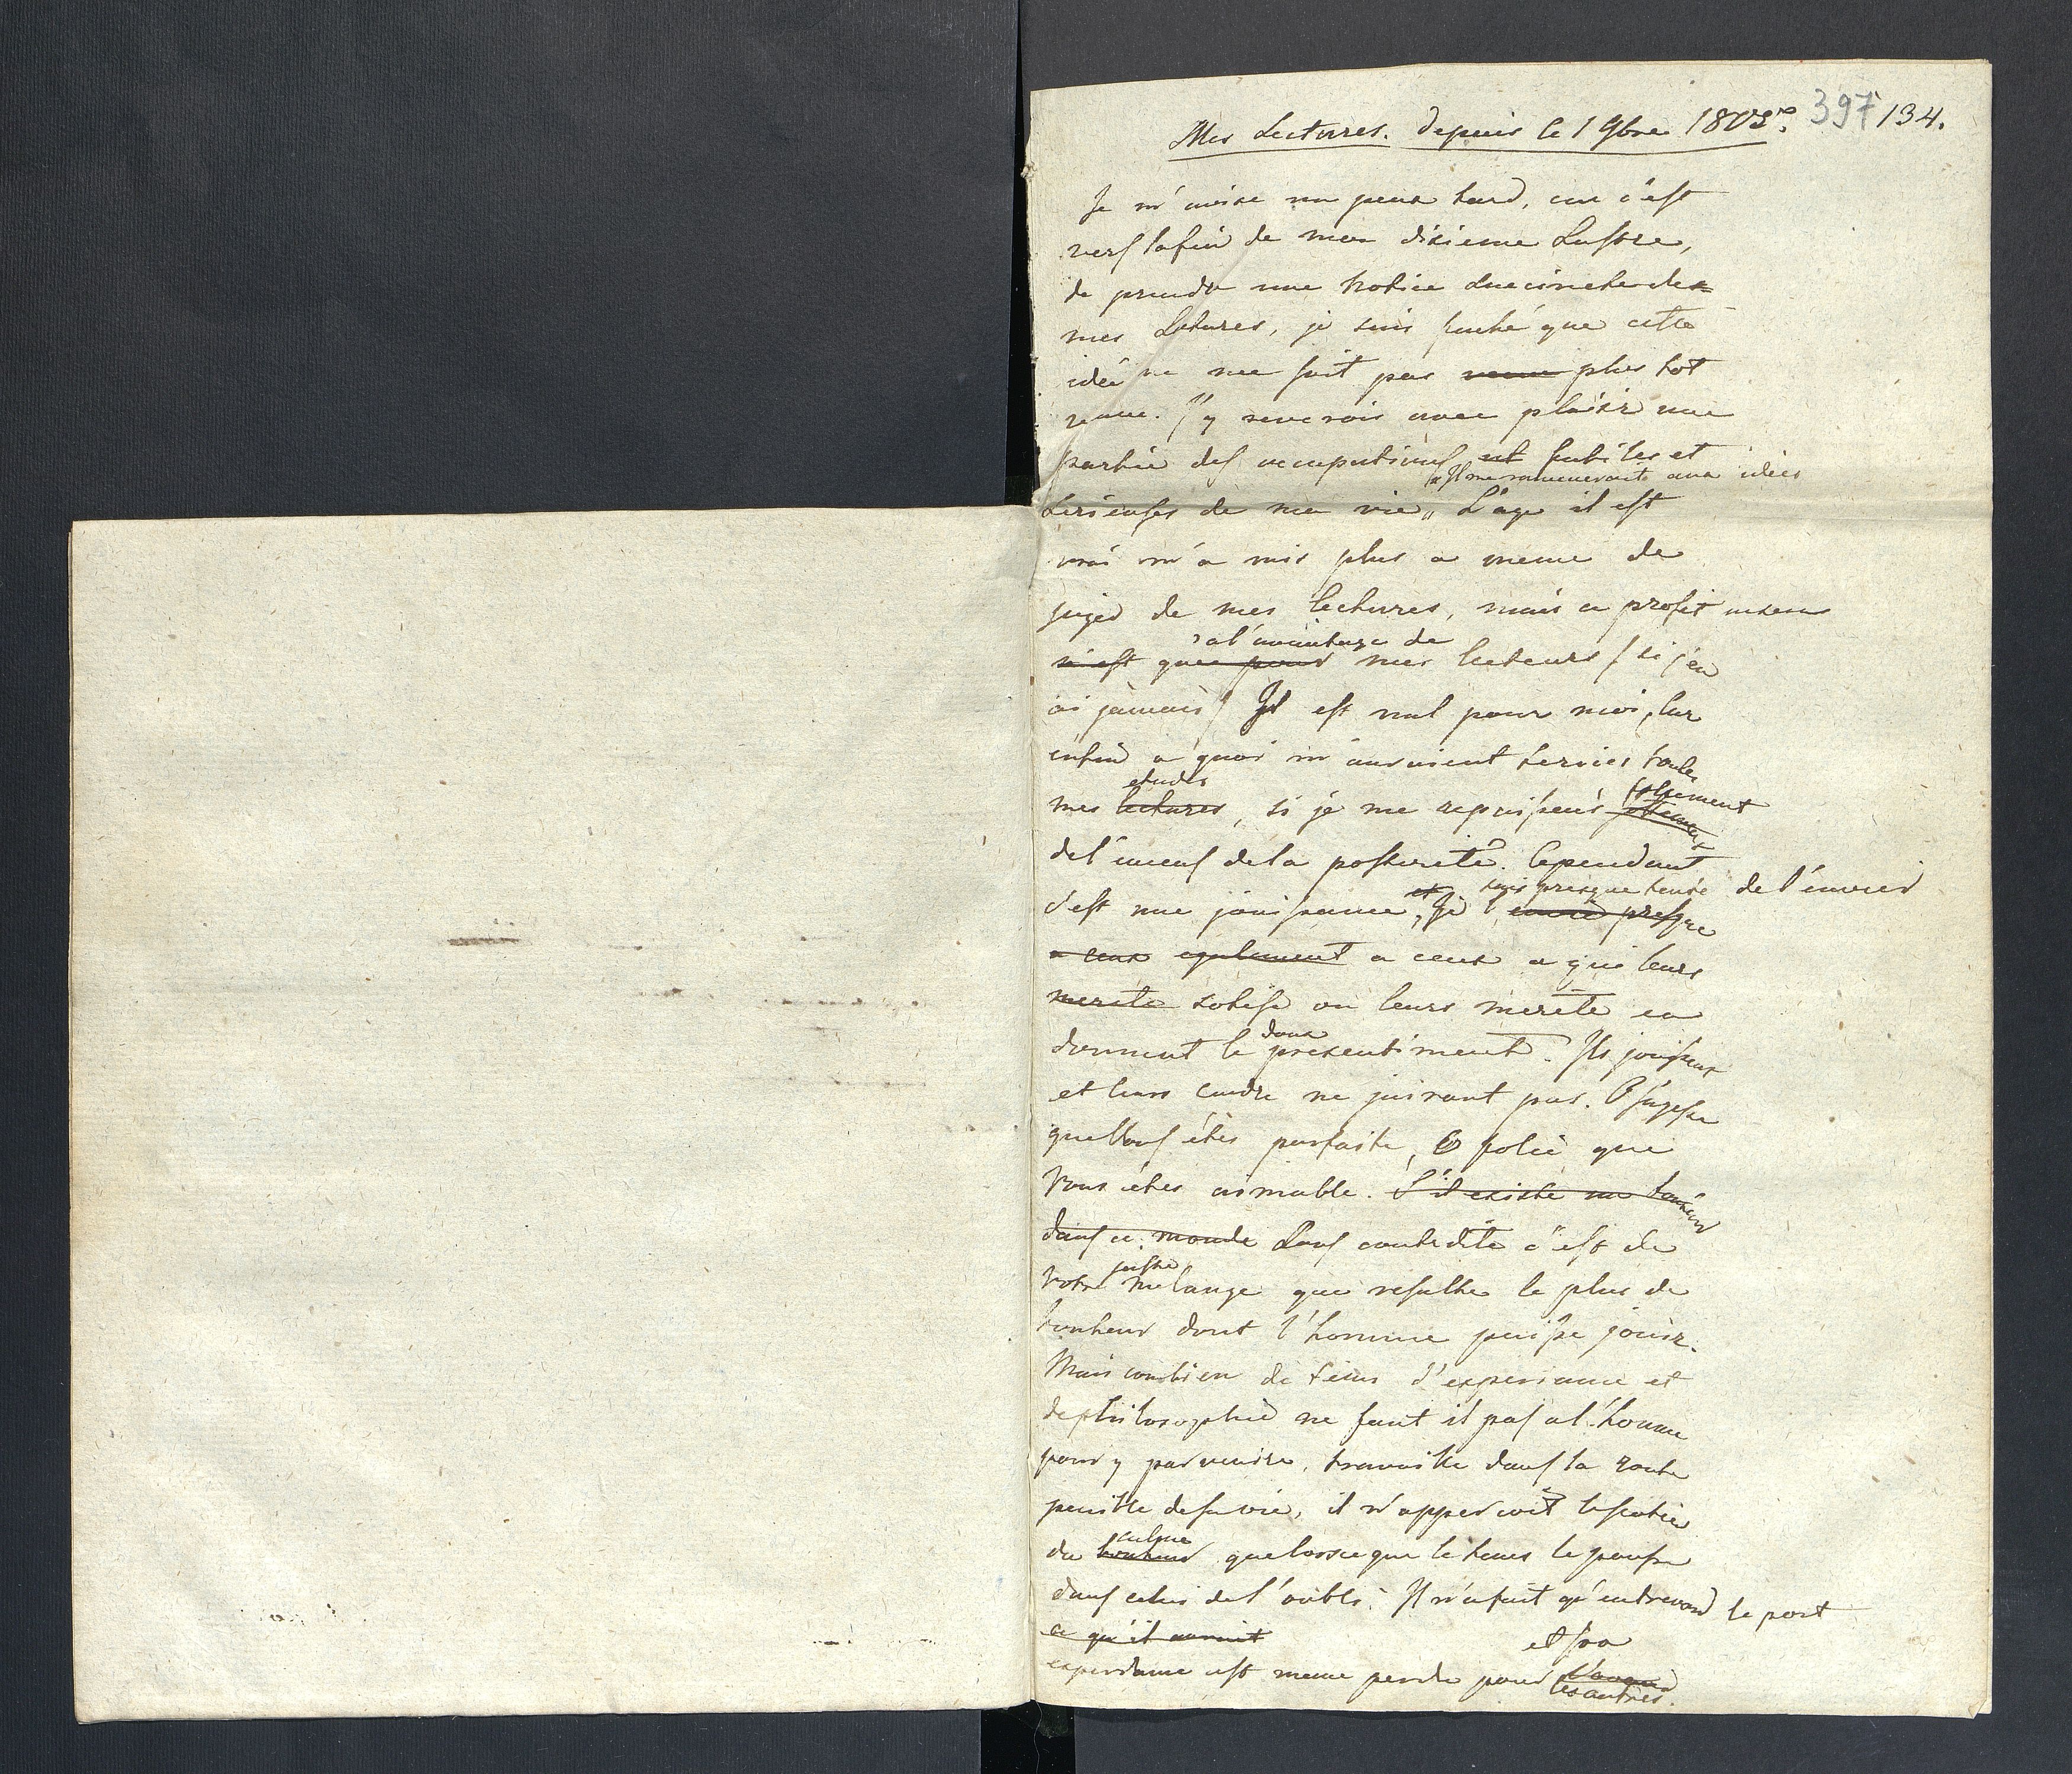 Mes Lectures. depuis le 1 9bre 1803. 397 134.
Je m'avise un peux tard, car c'est
vers la fin de mon dixieme Lustre,
de prendre une Notice Succincte de
mes Lectures, je suis faché que cette
idée ne me soit pas venue plus tot
venue. J'y reverois avec plaisir une
partie des occupations ut futiles et
Il me rameneroit aux idées
Serieuses de ma vie,, L'age il est
vrai m'a mis plus a meme de
juger de mes lectures, mais ce profit
a l'avantage de
n'est que pour mes lecteurs / si j'en
ai jamais / Il est nul pour moi, car
enfin a quoi m'auroient servies toutes
etudes
mes lectures, si je me repaissais sottement
de l'encens de la posterité. Cependant
et suis presque tenté de l'envier
c'est une jouissance, Je l'envie presque
a ceux egalement a ceux a qui leurs
merite sotise ou leurs merite en
doux
donnent le presentiment. Ils jouissent
et leurs cendre ne jouiront pas. O sagesse
que Vous étes parfaite, O folie que
Vous étes aimable. S'il existe un bonheur
dans ce monde Sans contredite c'est de
juste
Votre melange que resulte le plus de
bonheur dont l'homme puisse jouir.
Mais combien de tems d'experiance et
de philosophie ne faut il pas a l'homme
pour y parvenire, travaille dans la route
penible de sa vie, il n'apperçoit le
calme
du bonheur que lorsque le tems le pousse
dans celui de l'oubli. Il n'a fait qu'entrevoir le port
ce qu'il auroit et son
experiance est meme perdu pour
les autres.